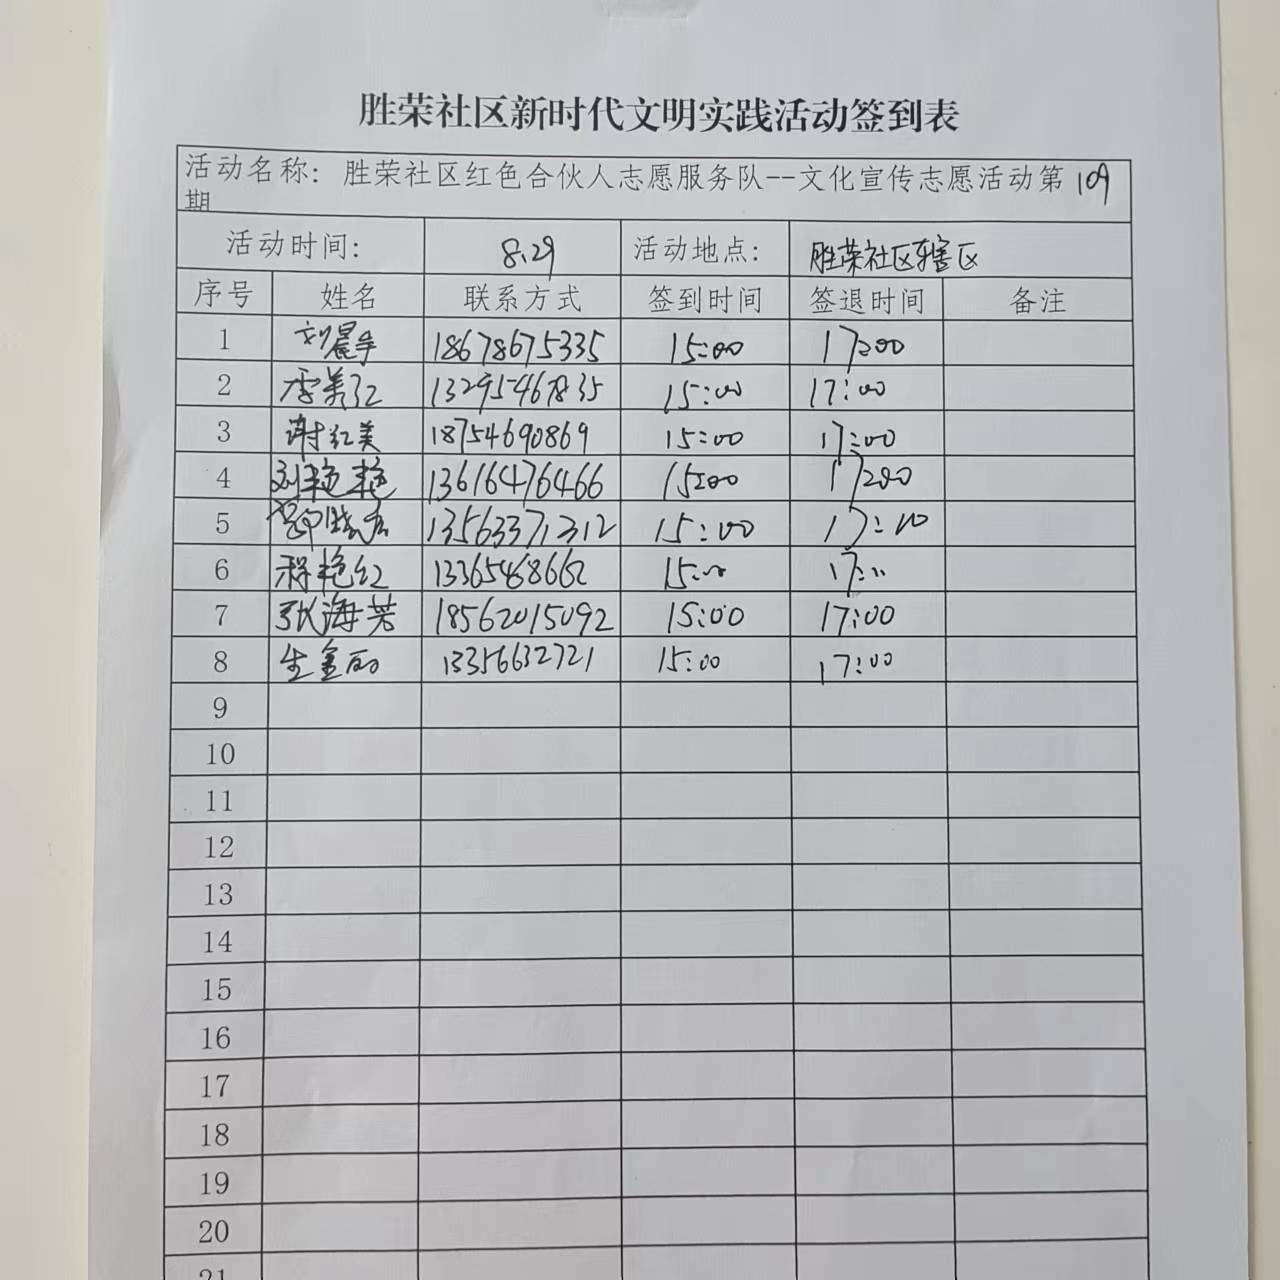 胜荣社区新时代文明实践活动签到表
活动名称：胜荣社区红色合伙人志愿服务队--文化宣传志愿活动第109
期
活动时间： 8.29 活动地点： 胜荣社区辖区
序号 姓名 联系方式 签到时间 签退时间 备注
1 刘晨 18678675335 15:00 17:00
2 李美红 13295467835 15:00 17:00
3 谢红美 18754690869 15:00 17:00
4 刘艳艳 13616476466 15:00 17:00
5 13563371312 15:00 17:10
6 程艳红 13365468662 15:00 17:00
7 张海芳 18562015092 15:00 17:00
8 生金丽 13356632721 15:00 17:00
9
10
11
12
13
14
15
16
17
18
19
20
21